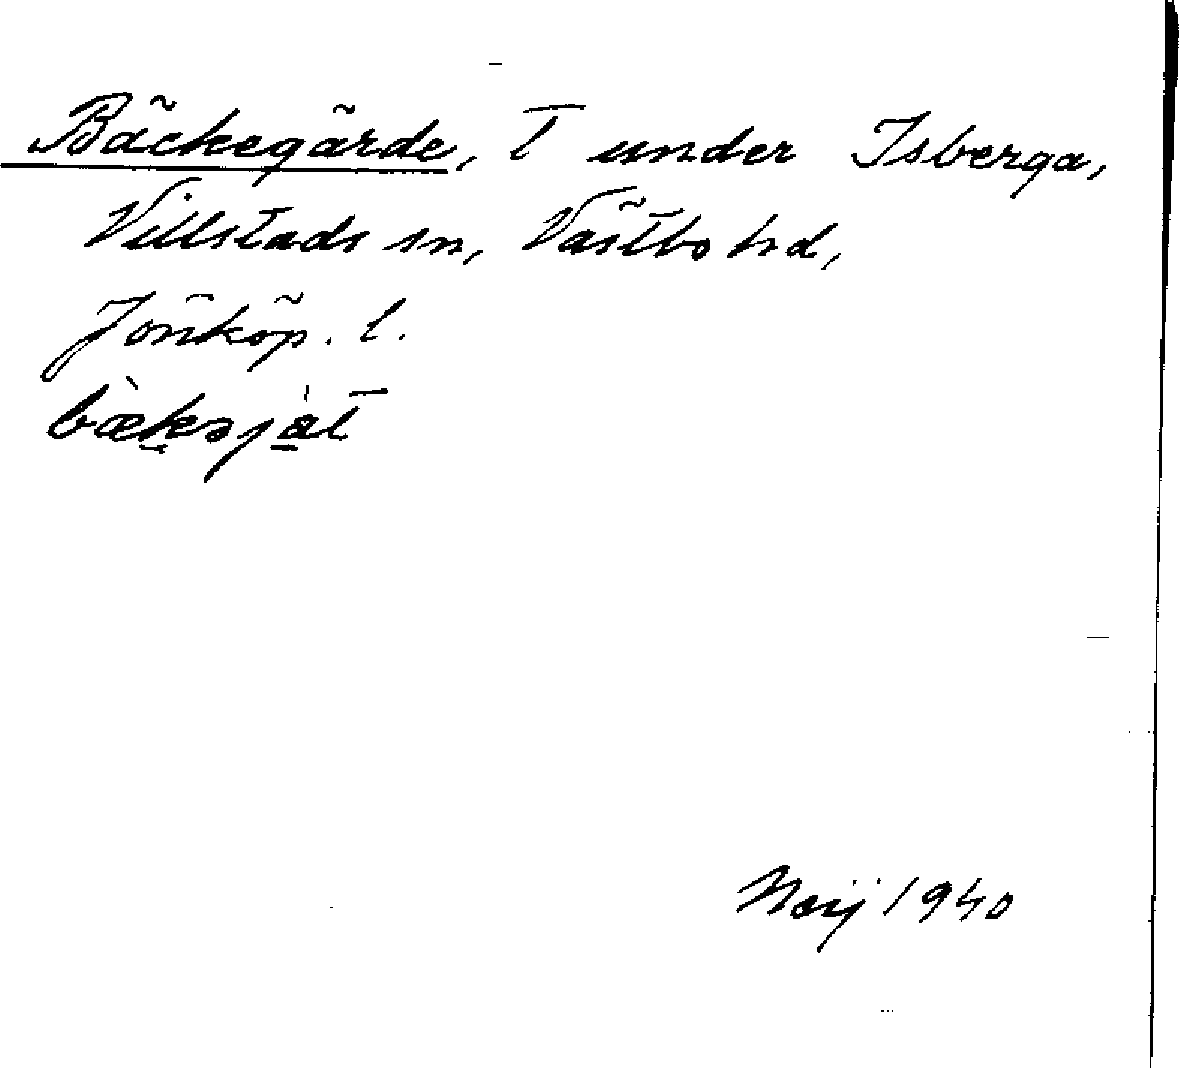 Bäckegärde, T under Isberga,
Villstads sn, Västbo hd,
Jönköp. l.
bæ̀kəjàt
1940